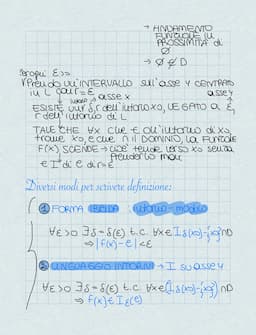 → ANDAMENTO
FUNZIONE IN
PROSSIMITÀ di
∅
→ ∅ ∉ D
Scopri ε>0
Prendo un'INTERVALLO sull'asse y CENTRATO
in L
asse x asse y
ESISTE un δ, r dell'intorno x0, LEGATO a ε,
r dell'intorno di L
TALE CHE ∀x che ∈ all'intorno di x0,
tranne x0, e che ∩ il DOMINIO, la FUNZIONE
F(x) SCENDE → cioè tende verso x0 senza
prenderlo mai
∈ I di ℓ di r=ε
Diversi modi per scrivere definizione:
① FORMA intorno - modulo
∀ε>0 ∃δ=δ(ε) t.c. ∀x∈I δ(x0)-{x0}∩D
⇒ |f(x)-ℓ|<ε
② LINGUAGGIO INTORNI → I su asse y
∀ε>0 ∃δ=δ(ε) t.c. ∀x∈(I δ(x0)-{x0})∩D
⇒ f(x)∈Iε(ℓ)